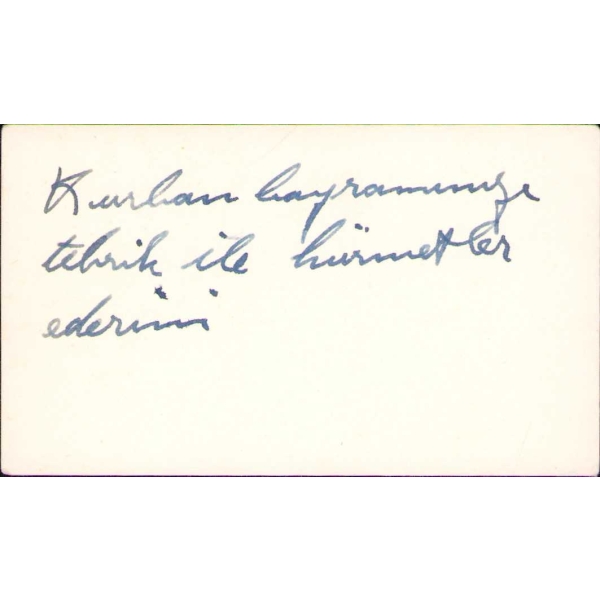 Kurban bayramınızı
tebrik ile hürmetler
ederim